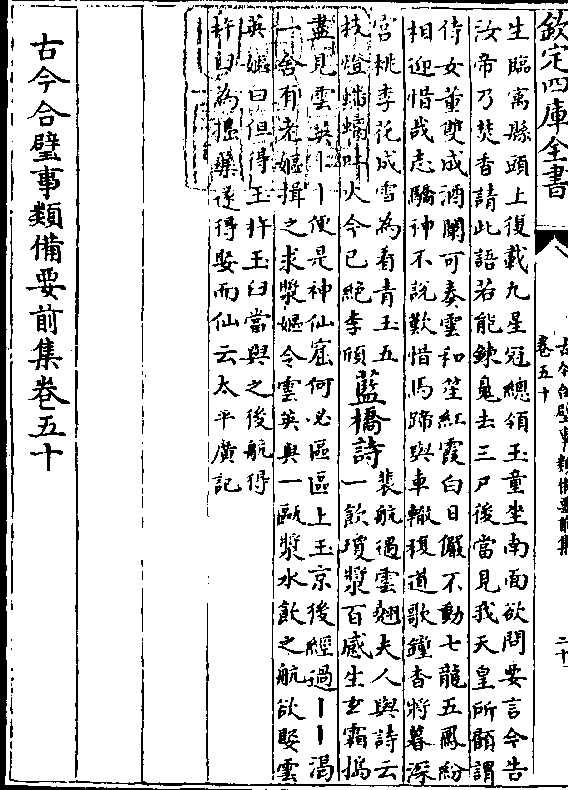 欽定四庫全書
古今合璧事類備要前集
卷五十
二十
生臨寓縣頭上復載九星冠總領玉童坐南面欲問要言今告
汝帝乃焚香請此語若能鍊鬼去三尸後當見我天皇所顧謂
侍女董雙成酒闌可奏雲和笙紅霞白日儼不動七龍五鳳紛
相迎惜哉志驕神不說歎惜馬蹄與車轍複道歌鐘杳將暮深
宮桃李花成雪為看青玉五
枝燈蟠螭吐火今已絶李頎
藍橋詩
裴航遇雲翹夫人與詩云
一飲瓊漿百感生玄霜搗
盡見雲英丨丨便是神仙窟何必區區上玉京後經過丨丨渴
一舍有老嫗揖之求漿嫗令雲英與一甌漿水飲之航欲娶雲
英嫗曰但得玉杵玉臼當與之後航得
杵臼為搗藥遂得娶而仙云太平廣記
古今合璧事類備要前集卷五十